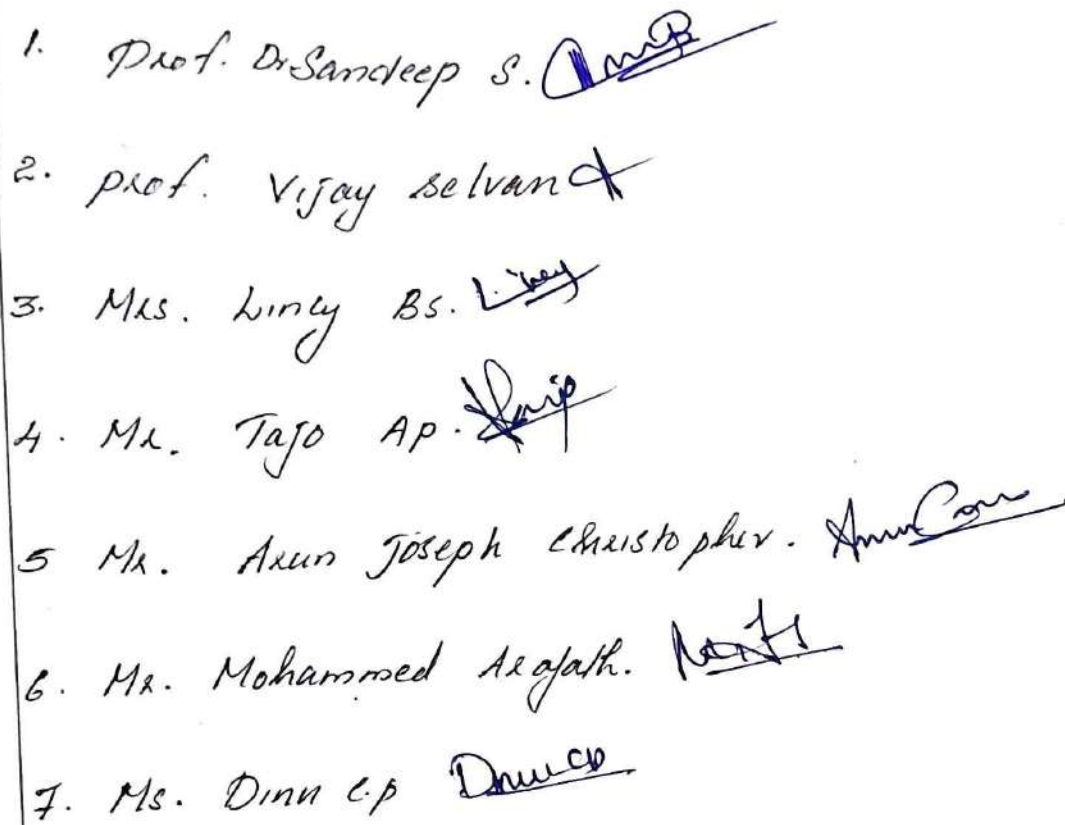 1. Prof. Dr Sandeep S.
2. prof. Vijay selvan
3. Mrs. Lincy BS. Lincy
4. Mr. Tajo AP.
5 Mr. Arun Joseph Christopher.
6. Mr. Mohammed Arafath.
7. Ms. Dinn C.P